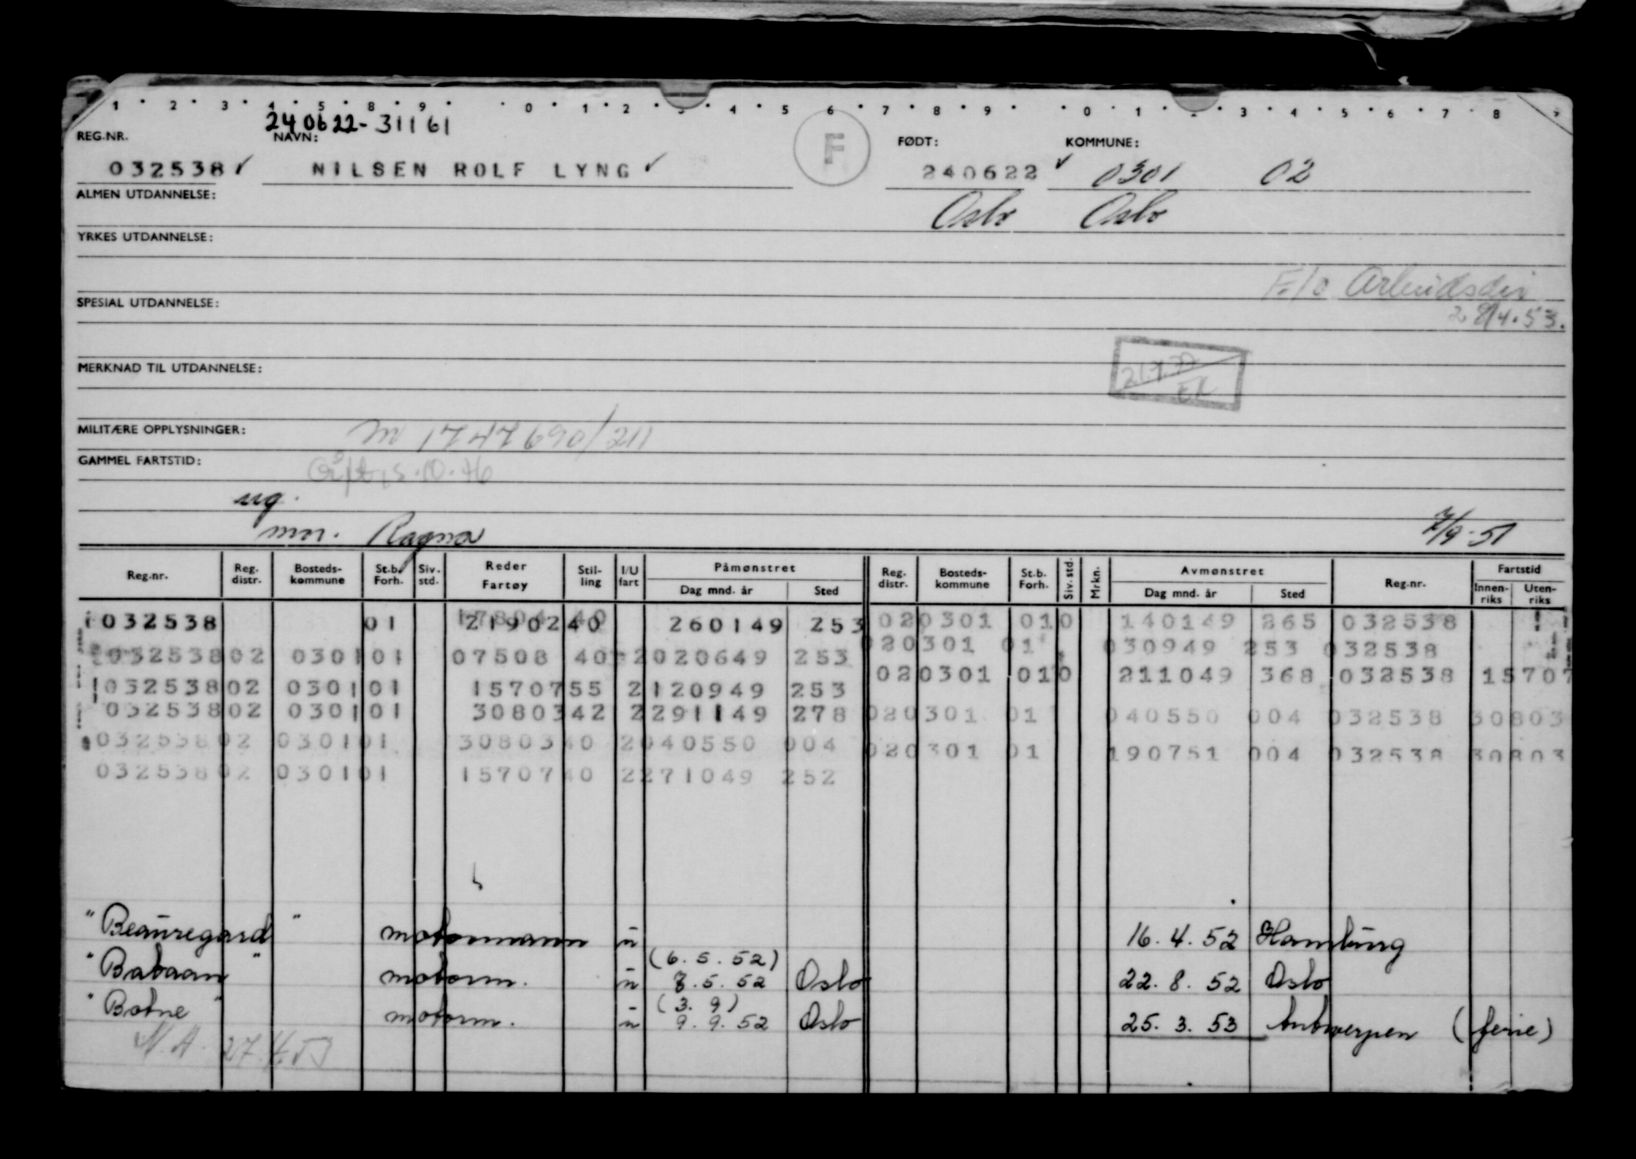 1 · 2 · 3 · 4 · 5 · 8 · 9 · · 0 · 1 · 2 · · 4 · 5 6 · 7 · 8 · 9 · · 0 · 1 · · 3 · 4 · 5 · 6 · 7 · 8
240622-31161
REG.NR. NAVN: F FØDT: KOMMUNE:
032538 ✓ NILSEN ROLF LYNG ✓ 240622 ✓ 0301 02
ALMEN UTDANNELSE: Oslo Oslo
YRKES UTDANNELSE:
F.to Arbeidsdir
SPESIAL UTDANNELSE: 28/4.53.
MERKNAD TIL UTDANNELSE:
EK
MILITÆRE OPPLYSNINGER: m 1747690/211
GAMMEL FARTSTID:
ug.
mor. Ragna 7/9-51
Reg.nr. Reg. distr. Bosteds-kommune St.b. Forh. Siv. std. Reder Fartøy Stil-ling I/U fart Påmønstret Dag mnd. år Sted Reg. distr. Bosteds-kommune St.b. Forh. Siv. std. Mrkn. Avmønstret Dag mnd. år Sted Reg.nr. Fartstid Innen-riks Uten-riks
032538 01 21902 40 260149 253 020301 010 140149 265 032538
032538 02 0301 01 07508 40 2 020649 253 020301 01 030949 253 032538
032538 02 0301 01 15707 55 2 120949 253 020301 010 211049 368 032538 15707
032538 02 0301 01 30803 42 2 291149 278 020301 01 040550 004 032538 30803
032538 02 0301 01 30803 40 2 040550 004 020301 01 190751 004 032538 30803
032538 02 0301 01 15707 40 2 271049 252
"Beauregard" motormann u 16.4.52 Hamburg
(6.5.52)
"Babaan" motorm. u 8.5.52 Oslo 22.8.52 Oslo
(3.9)
"Botne" motorm. u 9.9.52 Oslo 25.3.53 Antwerpen (ferie)
N.A. 27.4.53